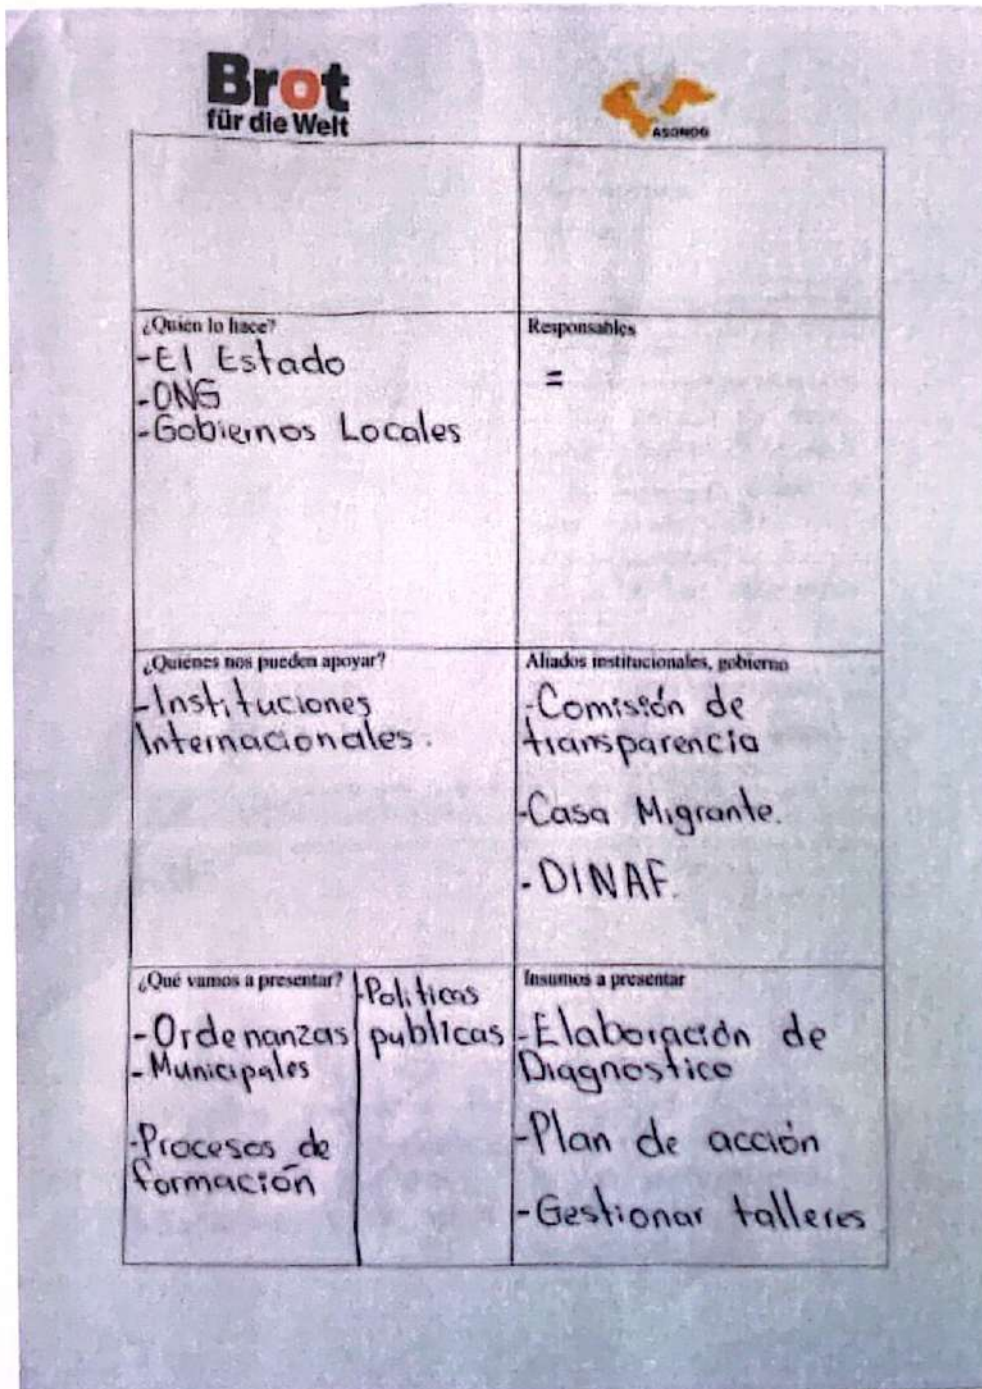 Brot
für die Welt
ASONOG
¿Quien lo hace?
-El Estado
-ONG
-Gobiernos Locales
Responsables
=
¿Quiénes nos pueden apoyar?
-Instituciones
Internacionales.
Aliados institucionales, gobierno
-Comisión de
transparencia
-Casa Migrante.
-DINAF.
¿Qué vamos a presentar?
-Ordenanzas
-Municipales
-Procesos de
formación
-Politicas
publicas
Insumos a presentar
-Elaboración de
Diagnostico
-Plan de acción
-Gestionar talleres